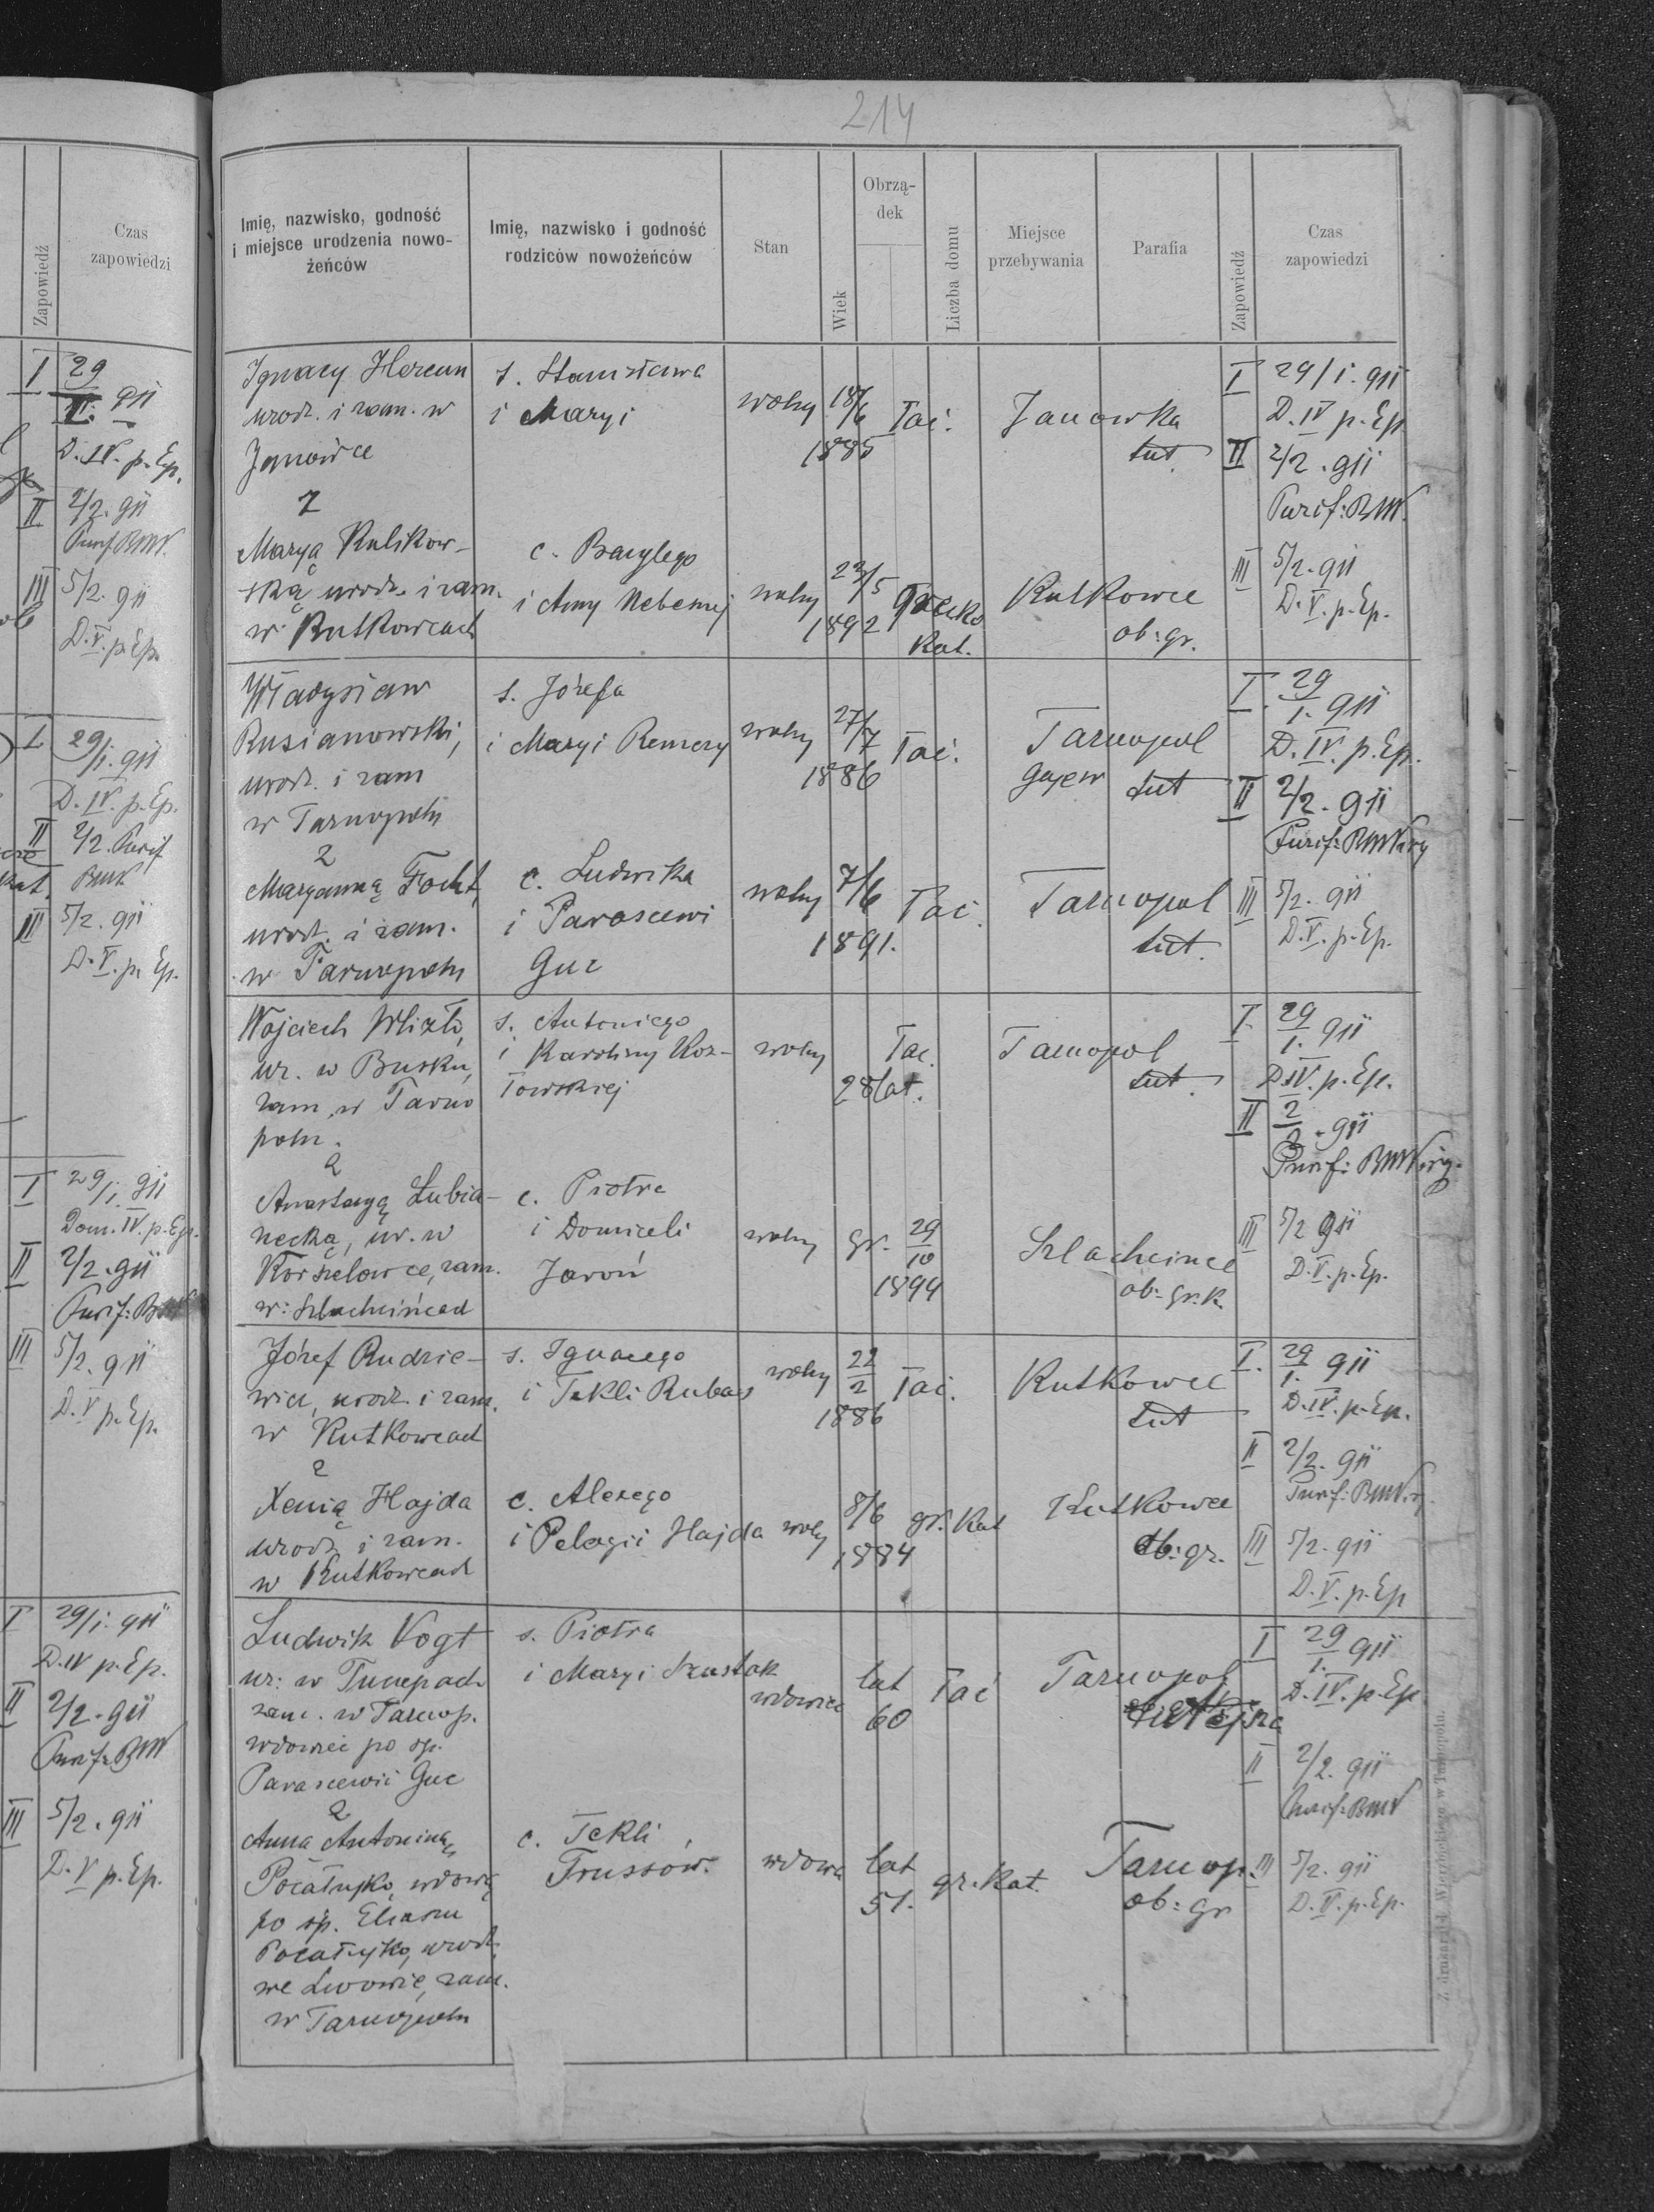 214
Zapowiedź
Czas
zapowiedzi
I 29
I. 911
D. IV. p. Ep.
II 2/2. 911
Purif. BMV.
III 5/2. 911
D. V. p. Ep.
I 29/I. 911
D. IV. p. Ep.
II 2/2. Purif
BMV
III 5/2. 911
D. V. p. Ep.
I 29/I. 911
Dom. IV. p. Ep.
II 2/2. 911
Purif: BMV
III 5/2. 911
D. V p. Ep.
I 29/I. 911
D. IV p. Ep.
II 2/2. 911
Purif: BMV
III 5/2. 911
D. V p. Ep.
Imię, nazwisko, godność
i miejsce urodzenia nowo-
żeńców
Imię, nazwisko i godność
rodziców nowożeńców
Stan
Wiek
Obrzą-
dek
Liczba domu
Miejsce
przebywania
Parafia
Zapowiedź
Czas
zapowiedzi
Ignacy
urodz. i zam. w
Janówce
z
Maryą Kulikow-
ską urodz. i zam.
w Kutkowcach
s. Stanisława
i Maryi
c. Bazylego
i Anny
wolny
wolny
18/6
1885
23/5
1892
łac.
grecko
kat.
Janowka
tut.
Kutkowce
ob: gr.
I 29/I. 911
D. IV p. Ep.
II 2/2. 911
Purif: BMV.
III 5/2. 911
D. V. p. Ep.
Władysław
Rusianowski,
urodz. i zam
w Tarnopolu
z
Maryanną Focht,
urodz. i zam.
w Tarnopolu
s. Józefa
i Maryi Remezy
c. Ludwika
i Parascewi
Guc
wolny
wolny
27/7
1886
7/6
1891.
łac.
łac.
Tarnopol
Gajew tut
Tarnopol
tut.
I. 29
I. 911
D. IV. p. Ep.
II 2/2. 911
Purif: BMVirg
III 5/2. 911
D. V. p. Ep.
Wojciech Wlizło,
ur. w Busku,
zam. w Tarno
polu.
z
Anastazyą Łubia-
necką, ur. w
zam.
w: Szlachcińcach
s. Antoniego
i Karoliny Koz-
łowskiej
c. Piotra
i Domiceli
Jaroń
wolny
wolny
28 lat.
29
10
1894
łac.
gr.
Tarnopol
tut.
Szlachcince
ob: gr. k.
I. 29
I. 911
D. IV. p. Ep.
II 2
2. 911
Purif: BMVirg.
III 5/2 911
D. V. p. Ep.
Józef Rudzie-
wicz, urodz. i zam.
w Kutkowcach
z
Xenią Hajda
urodz. i zam.
w Kutkowcach
s. Ignacego
i Tekli Rubas
c. Alexego
i Pelagii Hajda
wolny
wolny
22
2
1886
8/6
1884
łac.
gr. kat
Kutkowce
tut
Kutkowce
ob: gr.
I. 29
I. 911
D. IV. p. Ep.
II 2/2. 911
Purif: BMVirg.
III 5/2. 911
D. V. p. Ep
Ludwik Vogt
ur: w
zam. w Tarnop.
wdowiec po sp.
Parascewii Guc
z
Anną Antoniną
Pocałujko, wdową
po śp. Eliaszu
Pocałujko, urodz.
we Lwowie, zam.
w Tarnopolu
s. Piotra
i Maryi Szustak
c. Tekli
Trussow.
wdowiec
wdowa
lat
60
lat
51.
łac
gr. kat.
Tarnopol
tutejsza
Tarnop.
ob: gr
I 29
I. 911
D. IV. p. Ep.
II 2/2. 911
Purif: BMV
III 5/2. 911
D. V. p. Ep.
Z drukarni J. Wierzbickiego w Tarnopolu.